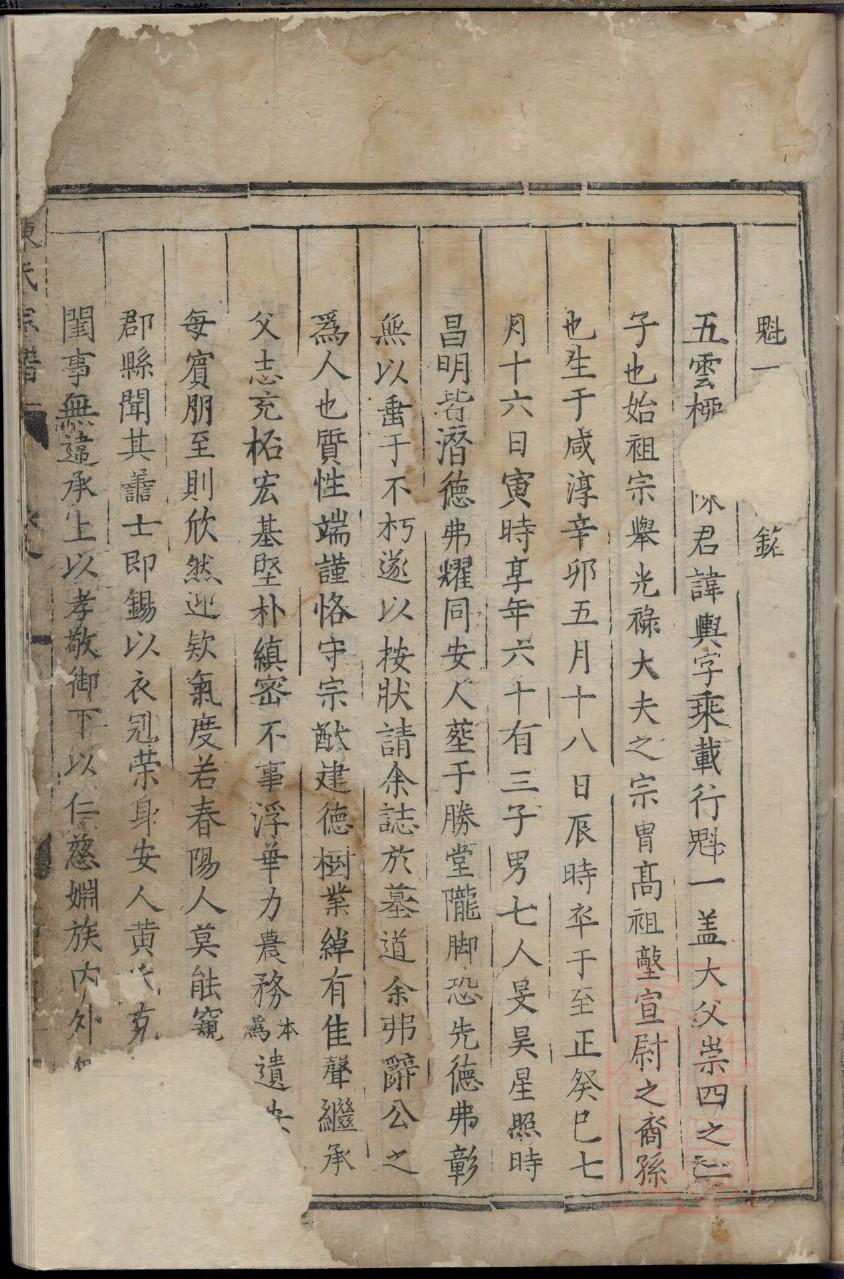 魁一 銘
五雲 陳君諱輿字乘載行魁一盖大父崇四之
子也始祖宗舉光祿大夫之宗冑髙祖墍宣尉之裔孫
也生于咸淳辛卯五月十八日辰時卒于至正癸巳七
月十六日寅時享年六十有三子男七人旻昊星照時
昌明皆潛德弗耀同安人塟于勝堂隴脚恐先德弗彰
無以垂于不朽遂以按狀請余誌於墓道余弗辭公之
爲人也質性端謹恪守宗猷建德樹業綽有佳聲繼承
父志充柘宏基堅朴縝密不事浮華力農務本爲遺
每賓朋至則欣然迎欵氣度若春陽人莫能窺
郡縣聞其譱士即錫以衣冠荣身安人黄氏克
閨事無違承上以孝敬御下以仁慈婣族内外
陳氏宗譜